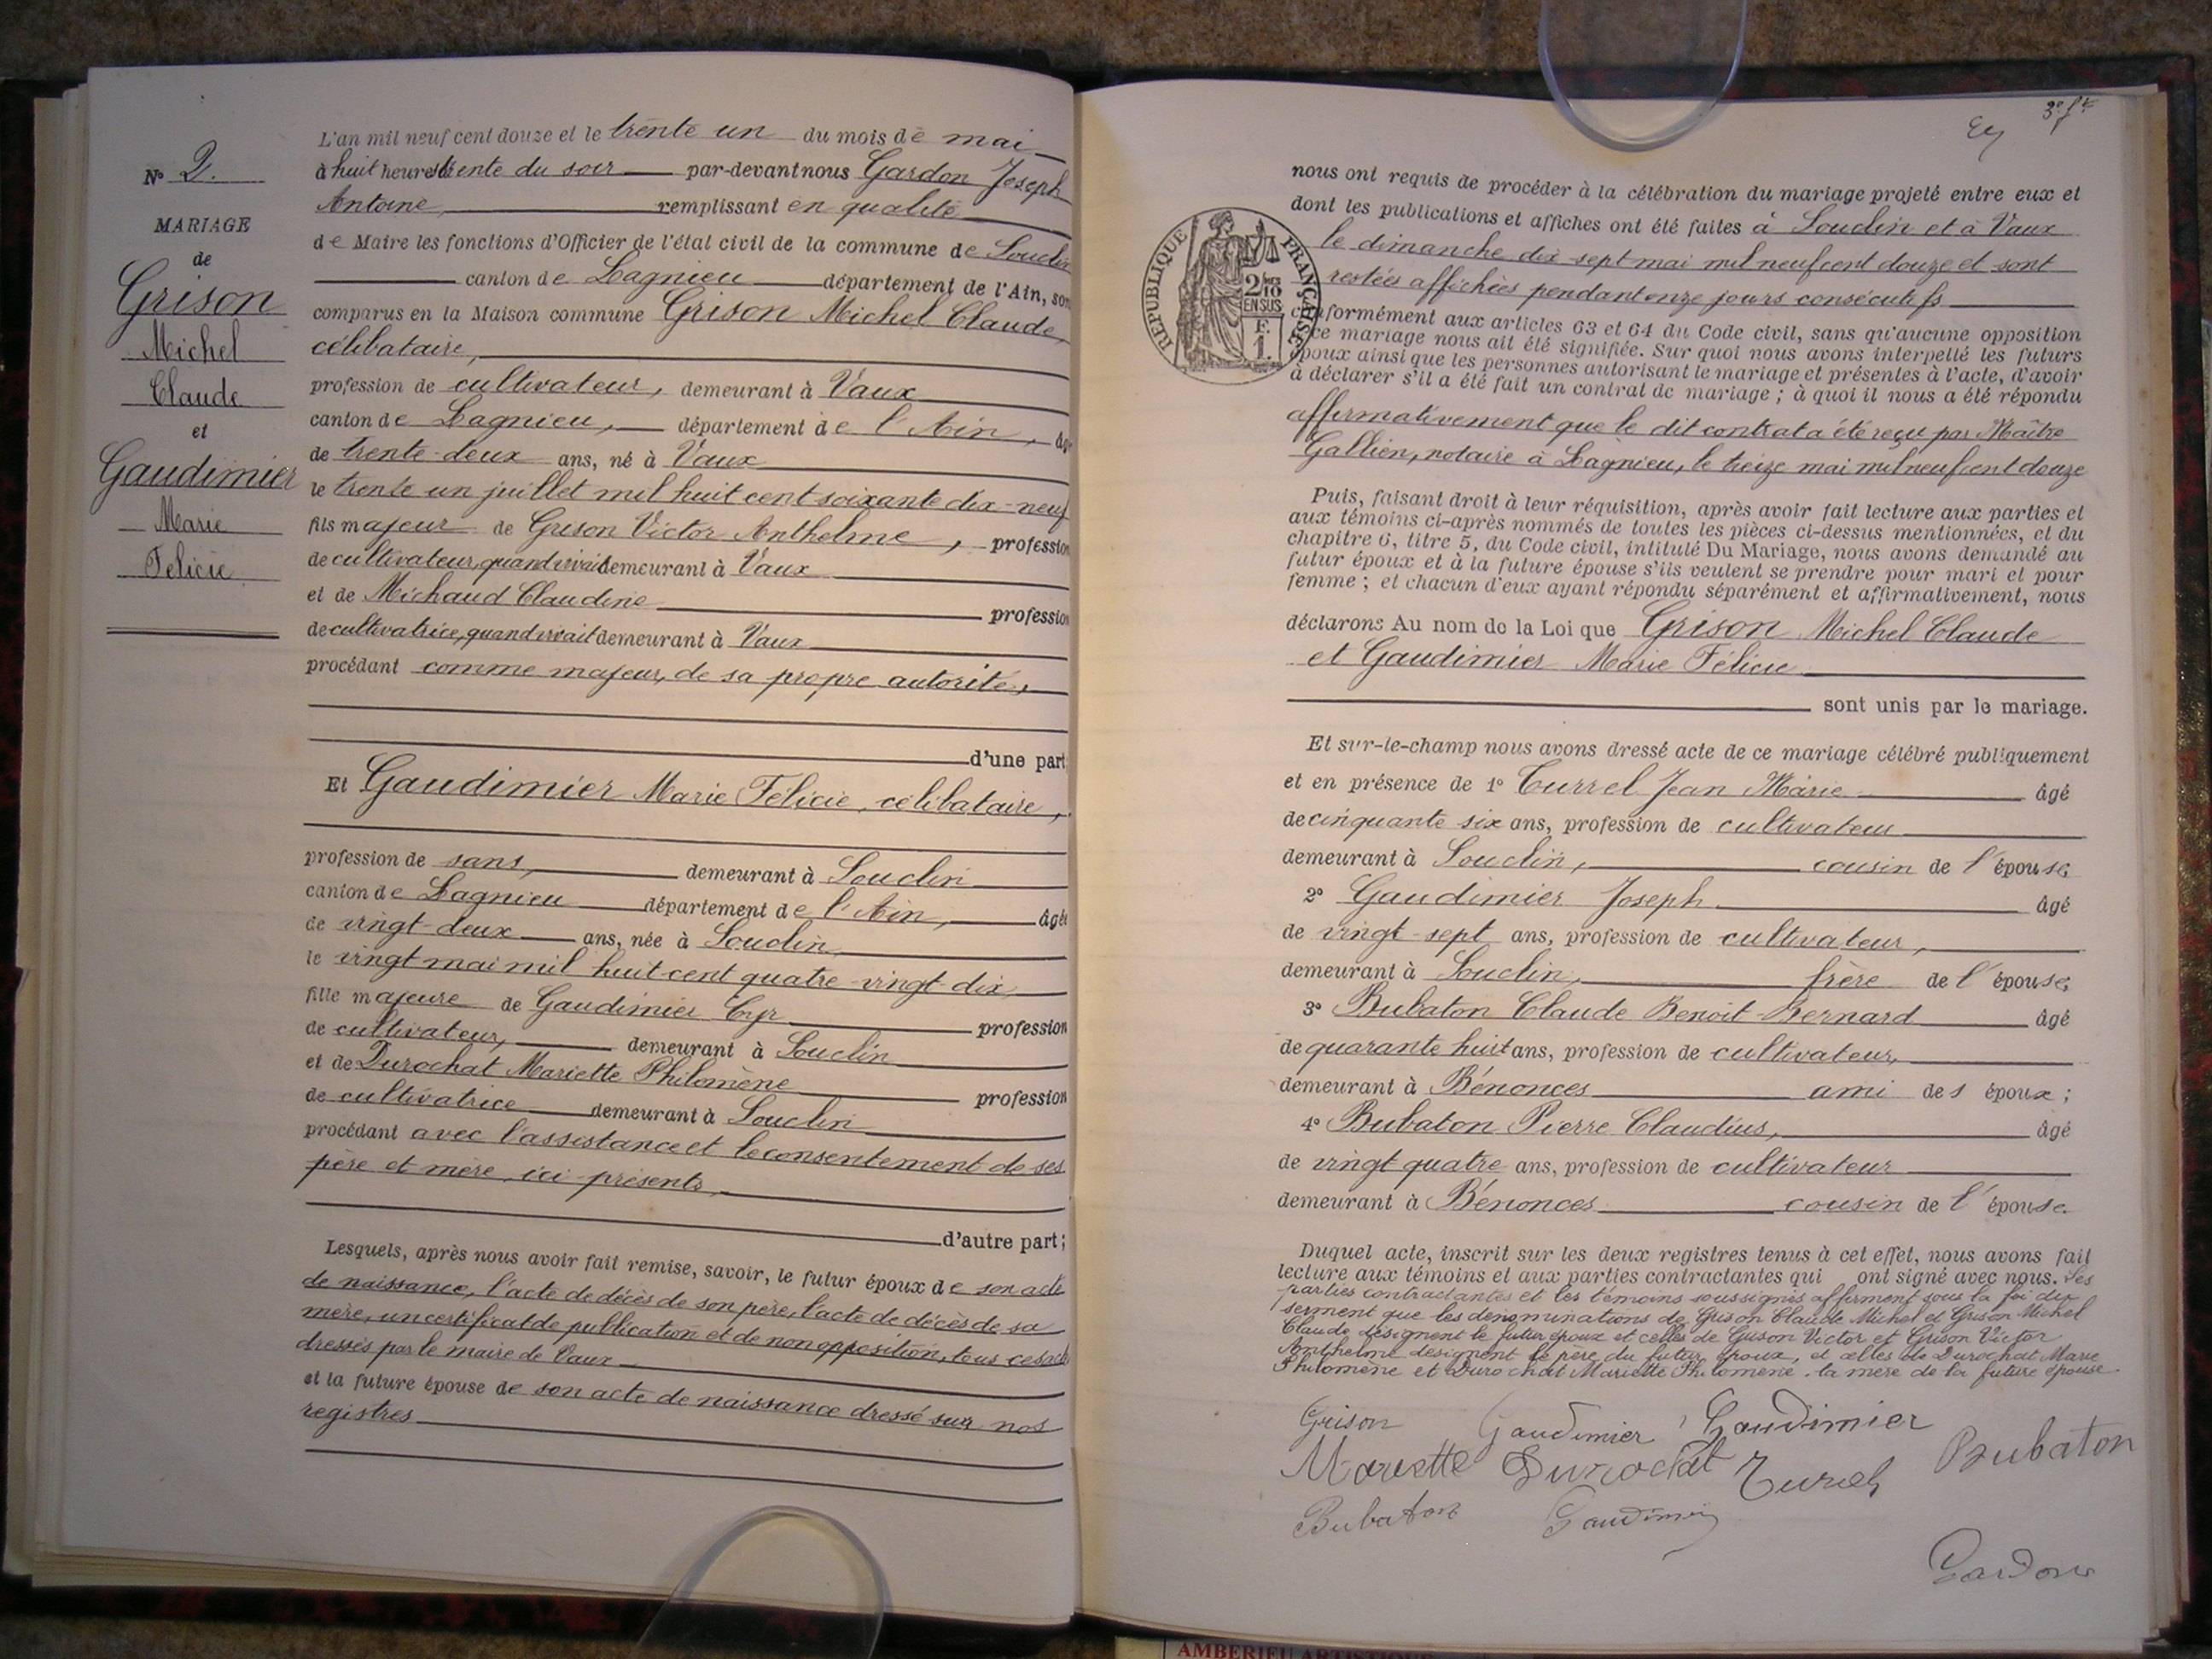 L'an mil neuf cent douze et le trente un du mois de mai
N° 2.
à huit heures trente du soir par-devant nous Gardon Joseph
Antoine, remplissant en qualité
MARIAGE
de
Grison
Michel
Claude
et
Gaudimier
Marie
Felicie
de Maire les fonctions d'Officier de l'état civil de la commune de Souclin
canton de Lagnieu département de l'Ain, son
comparus en la Maison commune Grison Michel Claude,
célibataire,
profession de cultivateur, demeurant à Vaux
canton de Lagnieu, département de l'Ain, âgé
de trente-deux ans, né à Vaux
le trente un juillet mil huit cent soixante dix-neuf
fils majeur de Grison Victor Anthelme, profession
de cultivateur, quand vivait demeurant à Vaux
et de Michaud Claudine profession
de cultivatrice, quand vivait demeurant à Vaux
procédant comme majeur, de sa propre autorité,
d'une part
Et Gaudimier Marie Felicie, célibataire,
profession de sans, demeurant à Souclin
canton de Lagnieu département de l'Ain, âgée
de vingt-deux ans, née à Souclin
le vingt mai mil huit cent quatre-vingt-dix
fille majeure de Gaudimier Cyr profession
de cultivateur, demeurant à Souclin
et de Durochat Mariette Philomène profession
de cultivatrice demeurant à Souclin
procédant avec l'assistance et le consentement de ses
père et mère ici présents,
d'autre part;
Lesquels, après nous avoir fait remise, savoir, le futur époux de son acte
de naissance, l'acte de décès de son père, l'acte de décès de sa
mère, un certificat de publication et de non opposition, tous ces
dressés par le maire de Vaux
et la future épouse de son acte de naissance dressé sur nos
registres
3e
nous ont requis de procéder à la célébration du mariage projeté entre eux et
dont les publications et affiches ont été faites à Souclin et à Vaux
le dimanche dix-sept mai mil neuf cent douze et sont
restées affichées pendant onze jours consécutifs
RÉPUBLIQUE FRANÇAISE
2/10
EN SUS
F.
1.
conformément aux articles 63 et 64 du Code civil, sans qu'aucune opposition
ce mariage nous ait été signifiée. Sur quoi nous avons interpellé les futurs
époux ainsi que les personnes autorisant le mariage et présentes à l'acte, d'avoir
à déclarer s'il a été fait un contrat de mariage ; à quoi il nous a été répondu
affirmativement que le dit contrat a été reçu par Maître
Gallien, notaire à Lagnieu, le treize mai mil neuf cent douze
Puis, faisant droit à leur réquisition, après avoir fait lecture aux parties et
aux témoins ci-après nommés de toutes les pièces ci-dessus mentionnées, et du
chapitre 6, titre 5, du Code civil, intitulé Du Mariage, nous avons demandé au
futur époux et à la future épouse s'ils veulent se prendre pour mari et pour
femme ; et chacun d'eux ayant répondu séparément et affirmativement, nous
déclarons Au nom de la Loi que Grison Michel Claude
et Gaudimier Marie Félicie
sont unis par le mariage.
Et sur-le-champ nous avons dressé acte de ce mariage célébré publiquement
et en présence de 1° Turrel Jean Marie âgé
de cinquante six ans, profession de cultivateur
demeurant à Souclin, cousin de l'épouse
2° Gaudimier Joseph âgé
de vingt-sept ans, profession de cultivateur,
demeurant à Souclin, frère de l'épouse;
3° Bubaton Claude Benoit-Bernard âgé
de quarante huit ans, profession de cultivateur,
demeurant à Bénonces ami des époux ;
4° Bubaton Pierre Claudius, âgé
de vingt quatre ans, profession de cultivateur
demeurant à Bénonces cousin de l'épouse.
Duquel acte, inscrit sur les deux registres tenus à cet effet, nous avons fait
lecture aux témoins et aux parties contractantes qui ont signé avec nous. Les
parties contractantes et les témoins soussignés affirment sous la foi du
serment que les dénominations de Grison Claude Michel et Grison Michel
Claude désignent le futur époux et celles de Grison Victor et Grison Victor
Anthelme désignent le père du futur époux, et celles de Durochat Marie
Philomène et Durochat Mariette Philomène la mère de la future épouse
Grison Gaudimier Gaudimier
Mariette Durochat Turrel Bubaton
Bubaton Gaudimier
Gardon
AMBERIEU ARTISTIQUE